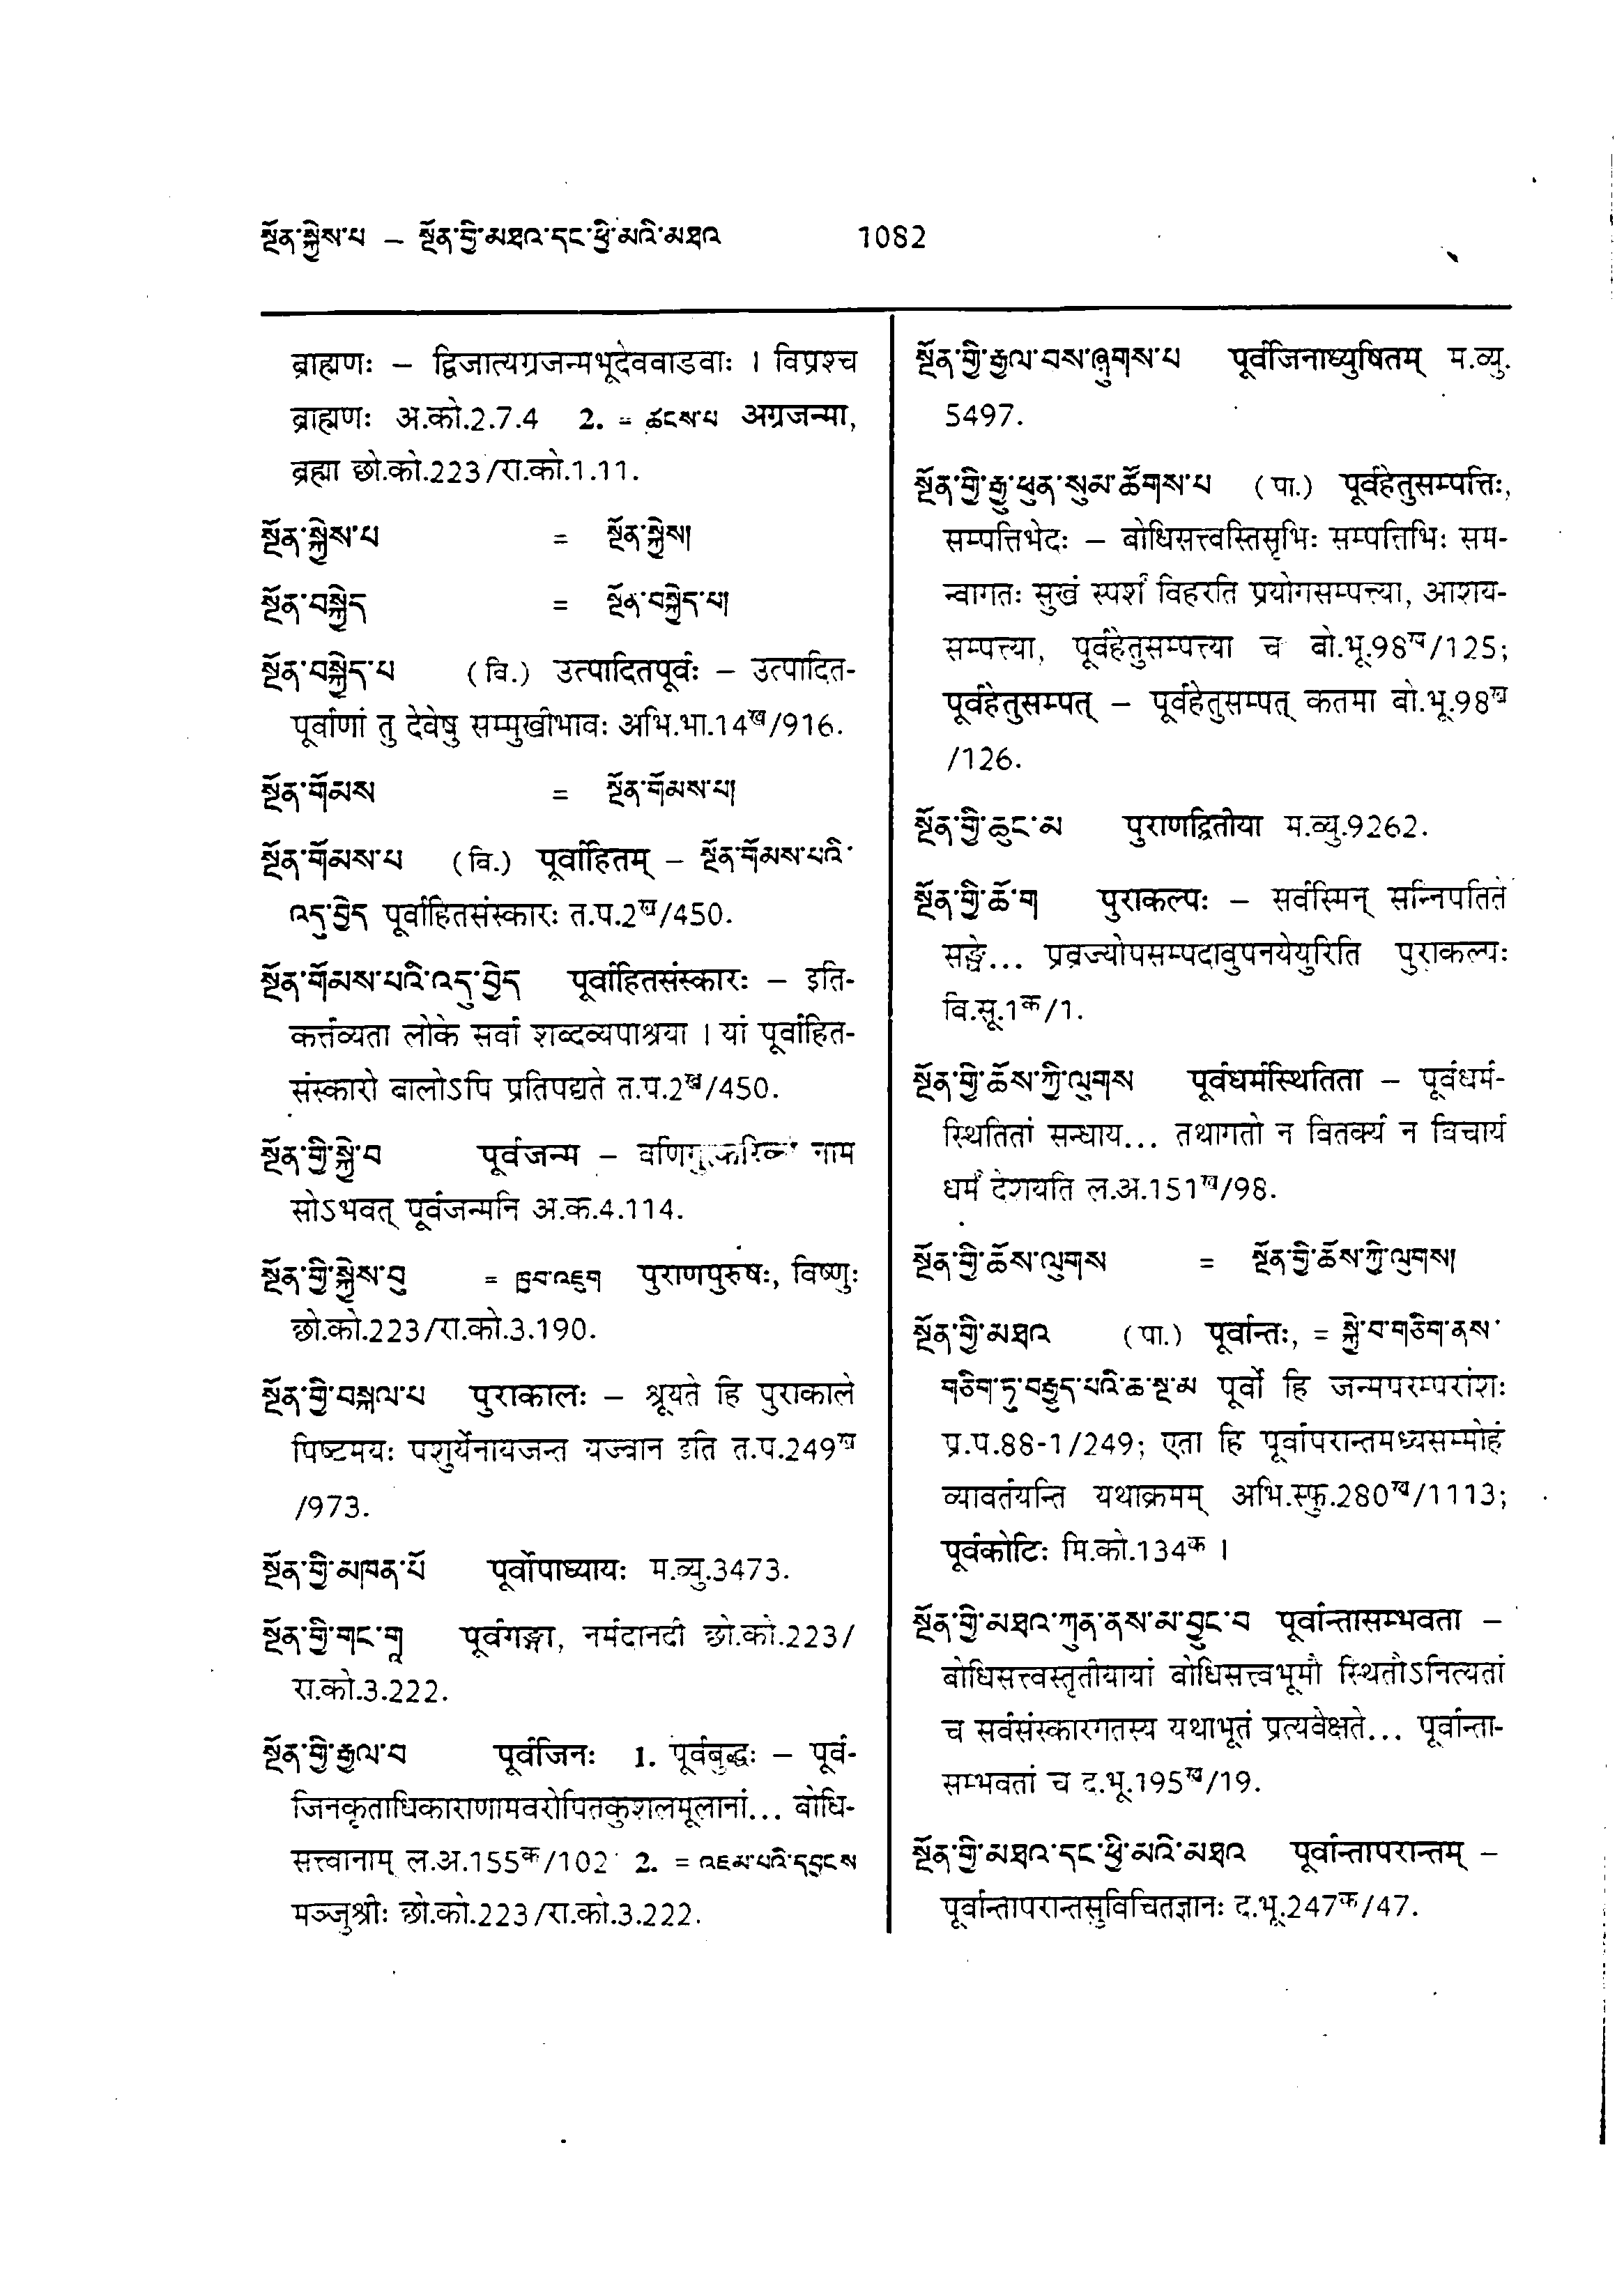 སྔོན་སྐྱེས་པ – སྔོན་གྱི་མཐའ་དང་ཕྱི་མའི་མཐའ 1082
ब्राह्मणः – द्विजात्यग्रजन्मभूदेववाडवाः । विप्रश्च
ब्राह्मणः अ.को.2.7.4 2. = ཚངས་པ अग्रजन्मा,
ब्रह्मा छो.को.223/रा.को.1.11.
སྔོན་སྐྱེས་པ = སྔོན་སྐྱེས།
སྔོན་བསྐྱེད = སྔོན་བསྐྱེད་པ།
སྔོན་བསྐྱེད་པ (वि.) उत्पादितपूर्वः – उत्पादित-
पूर्वाणां तु देवेषु सम्मुखीभावः अभि.भा.14ख/916.
སྔོན་གོམས = སྔོན་གོམས་པ།
སྔོན་གོམས་པ (वि.) पूर्वाहितम् – སྔོན་གོམས་པའི་
འདུ་བྱེད पूर्वाहितसंस्कारः त.प.2ख/450.
སྔོན་གོམས་པའི་འདུ་བྱེད पूर्वाहितसंस्कारः – इति-
कर्त्तव्यता लोके सर्वा शब्दव्यपाश्रया । यां पूर्वाहित-
संस्कारो बालोऽपि प्रतिपद्यते त.प.2ख/450.
སྔོན་གྱི་སྐྱེ་བ पूर्वजन्म – नाम
सोऽभवत् पूर्वजन्मनि अ.क.4.114.
སྔོན་གྱི་སྐྱེས་བུ = ཁྱབ་འཇུག पुराणपुरुषः, विष्णुः
छो.को.223/रा.को.3.190.
སྔོན་གྱི་བསྐལ་པ पुराकालः – श्रूयते हि पुराकाले
पिष्टमयः पशुर्येनायजन्त यज्वान इति त.प.249ख
/973.
སྔོན་གྱི་མཁན་པོ पूर्वोपाध्यायः म.व्यु.3473.
སྔོན་གྱི་གང་གཱ पूर्वगङ्गा, नर्मदानदी छो.को.223/
रा.को.3.222.
སྔོན་གྱི་རྒྱལ་བ पूर्वजिनः 1. पूर्वबुद्धः – पूर्व-
जिनकृताधिकाराणामवरोपितकुशलमूलानां... बोधि-
सत्त्वानाम् ल.अ.155क/102 2. = འཇམ་པའི་དབྱངས
मञ्जुश्रीः छो.को.223/रा.को.3.222.
སྔོན་གྱི་རྒྱལ་བས་ཞུགས་པ पूर्वजिनाध्युषितम् म.व्यु.
5497.
སྔོན་གྱི་རྒྱུ་ཕུན་སུམ་ཚོགས་པ (पा.) पूर्वहेतुसम्पत्तिः,
सम्पत्तिभेदः – बोधिसत्त्वस्तिसृभिः सम्पत्तिभिः सम-
न्वागतः सुखं स्पर्शं विहरति प्रयोगसम्पत्त्या, आशय-
सम्पत्त्या, पूर्वहेतुसम्पत्त्या च बो.भू.98ख/125;
पूर्वहेतुसम्पत् – पूर्वहेतुसम्पत् कतमा बो.भू.98ख
/126.
སྔོན་གྱི་ཆུང་མ पुराणद्वितीया म.व्यु.9262.
སྔོན་གྱི་ཆོ་ག पुराकल्पः – सर्वस्मिन् सन्निपतिते
सङ्घे... प्रव्रज्योपसम्पदावुपनयेयुरिति पुराकल्पः
वि.सू.1क/1.
སྔོན་གྱི་ཆོས་ཀྱི་ལུགས पूर्वधर्मस्थितिता – पूर्वधर्म-
स्थितितां सन्धाय... तथागतो न वितर्क्य न विचार्य
धर्मं देशयति ल.अ.151ख/98.
སྔོན་གྱི་ཆོས་ལུགས = སྔོན་གྱི་ཆོས་ཀྱི་ལུགས།
སྔོན་གྱི་མཐའ (पा.) पूर्वान्तः, = སྐྱེ་བ་གཅིག་ནས་
གཅིག་ཏུ་བརྒྱུད་པའི་ཆ་སྔ་མ पूर्वो हि जन्मपरम्परांशः
प्र.प.88-1/249; एता हि पूर्वापरान्तमध्यसम्मोहं
व्यावर्तयन्ति यथाक्रमम् अभि.स्फु.280ख/1113;
पूर्वकोटिः मि.को.134क ।
སྔོན་གྱི་མཐའ་ཀུན་ནས་མ་བྱུང་བ पूर्वान्तासम्भवता –
बोधिसत्त्वस्तृतीयायां बोधिसत्त्वभूमौ स्थितोऽनित्यतां
च सर्वसंस्कारगतस्य यथाभूतं प्रत्यवेक्षते... पूर्वान्ता-
सम्भवतां च द.भू.195ख/19.
སྔོན་གྱི་མཐའ་དང་ཕྱི་མའི་མཐའ पूर्वान्तापरान्तम् –
पूर्वान्तापरान्तसुविचितज्ञानः द.भू.247क/47.